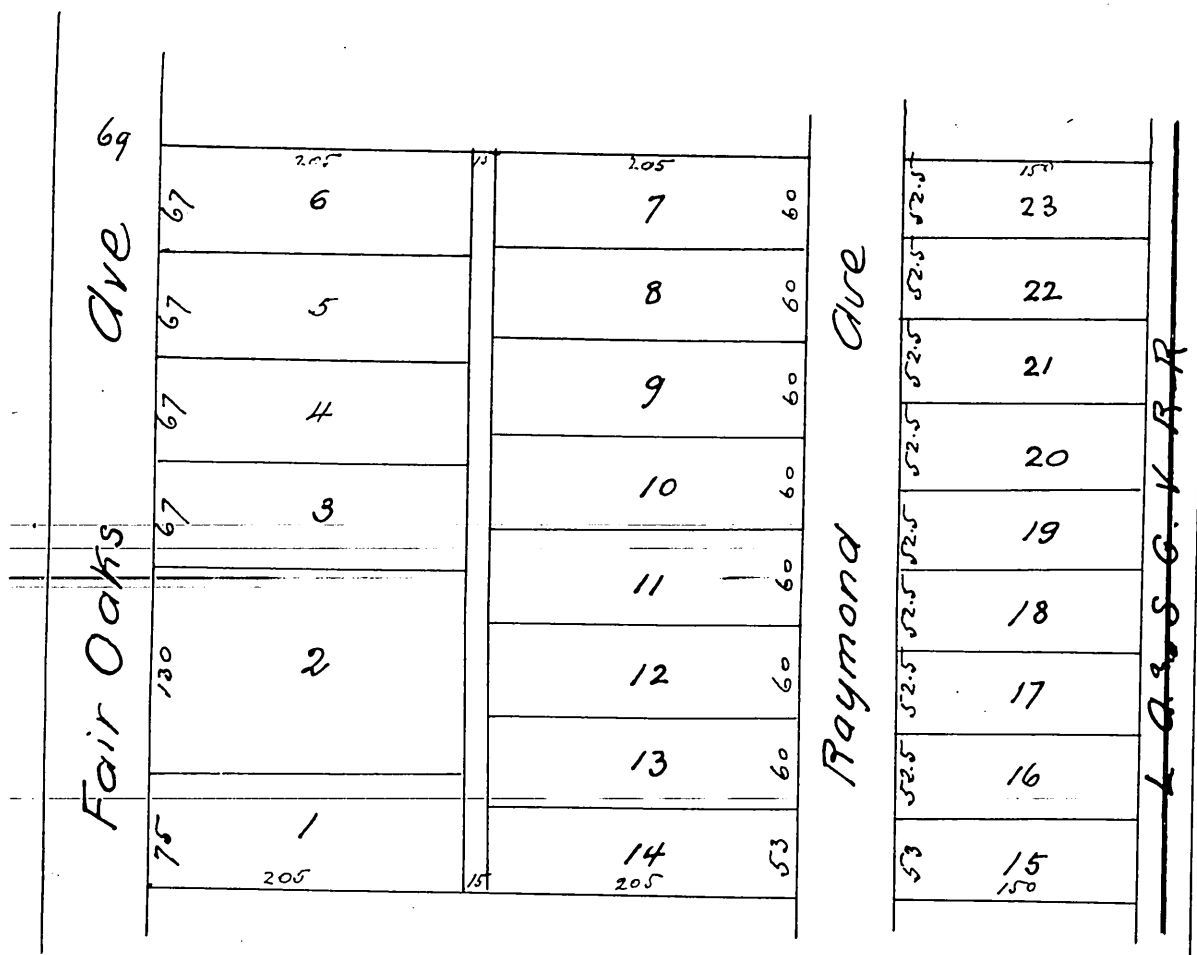 69
Fair Oaks Ave
205
67
6
67
5
67
4
67
3
130
2
75
1
205
15
15
205
7
60
8
60
9
60
10
60
11
60
12
60
13
60
14
53
205
Raymond Ave
150
52.5
23
52.5
22
52.5
21
52.5
20
52.5
19
52.5
18
52.5
17
52.5
16
53
15
150
L A & S G. V R-R